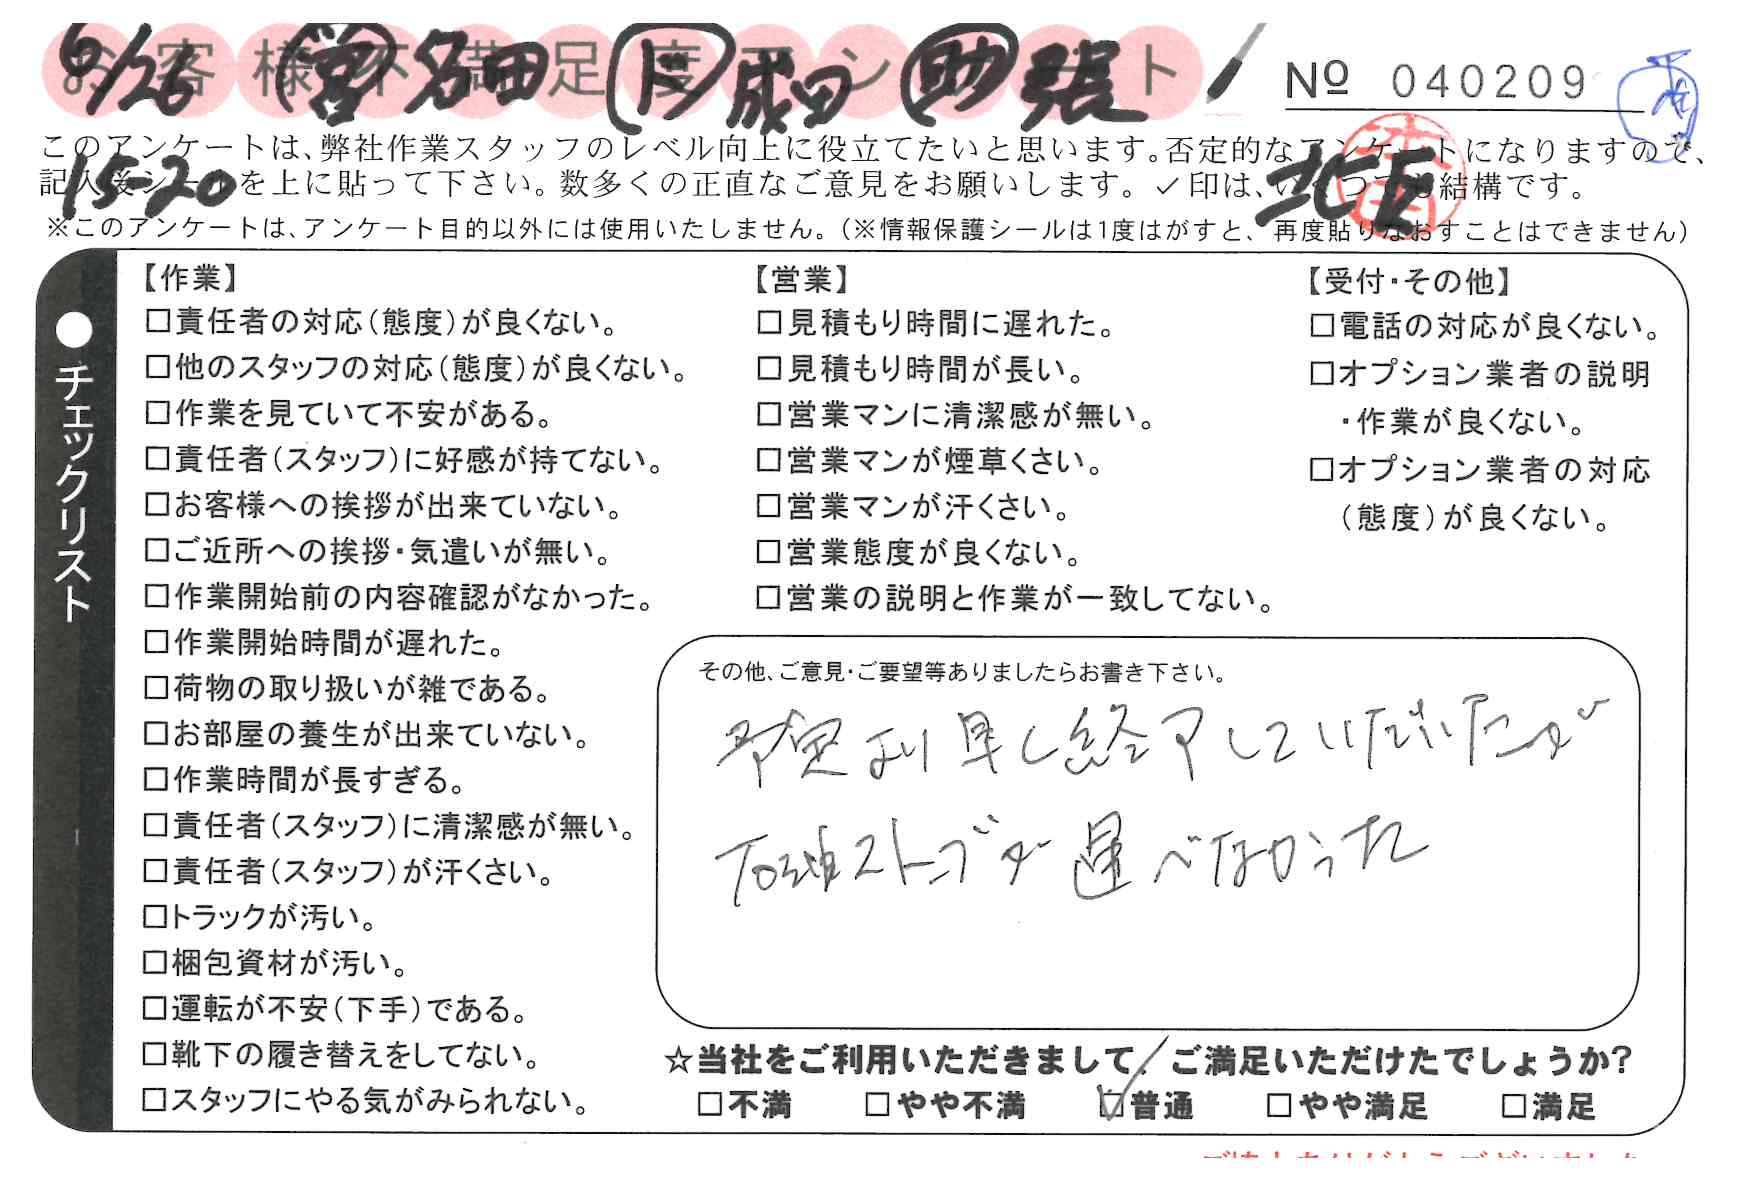 お客様不満足度アンケート
6/26 営 名田 ド 成田 助 張
15:20
北区
No 040209
このアンケートは、弊社作業スタッフのレベル向上に役立てたいと思います。否定的なアンケートになりますので、
記入後シールを上に貼って下さい。数多くの正直なご意見をお願いします。✓印は、いくつでも結構です。
※このアンケートは、アンケート目的以外には使用いたしません。(※情報保護シールは1度はがすと、再度貼りなおすことはできません)
●チェックリスト
【作業】
□責任者の対応(態度)が良くない。
□他のスタッフの対応(態度)が良くない。
□作業を見ていて不安がある。
□責任者(スタッフ)に好感が持てない。
□お客様への挨拶が出来ていない。
□ご近所への挨拶・気遣いが無い。
□作業開始前の内容確認がなかった。
□作業開始時間が遅れた。
□荷物の取り扱いが雑である。
□お部屋の養生が出来ていない。
□作業時間が長すぎる。
□責任者(スタッフ)に清潔感が無い。
□責任者(スタッフ)が汗くさい。
□トラックが汚い。
□梱包資材が汚い。
□運転が不安(下手)である。
□靴下の履き替えをしてない。
□スタッフにやる気がみられない。
【営業】
□見積もり時間に遅れた。
□見積もり時間が長い。
□営業マンに清潔感が無い。
□営業マンが煙草くさい。
□営業マンが汗くさい。
□営業態度が良くない。
□営業の説明と作業が一致してない。
【受付・その他】
□電話の対応が良くない。
□オプション業者の説明
・作業が良くない。
□オプション業者の対応
(態度)が良くない。
その他、ご意見・ご要望等ありましたらお書き下さい。
予定より早く終了していただいたが
石油ストーブが運べなかった
☆当社をご利用いただきまして、ご満足いただけたでしょうか?
□不満 □やや不満 ☑普通 □やや満足 □満足